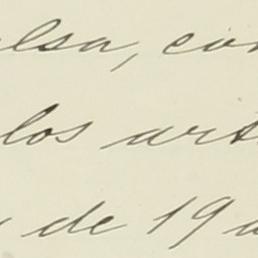 alsa, con
los art
y de 19 a